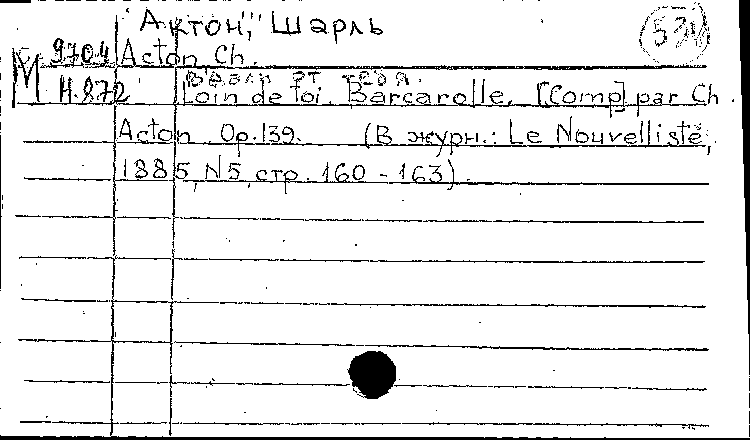 Актон, Шарль
М 9704 Acton Ch.
Н.872 Вдали от тебя.
Loin de toi. Barcarolle. [Comp] par Ch.
Acton. Op.139. (В журн.: Le Nouvelliste,
1885, N5, стр. 160 - 163).